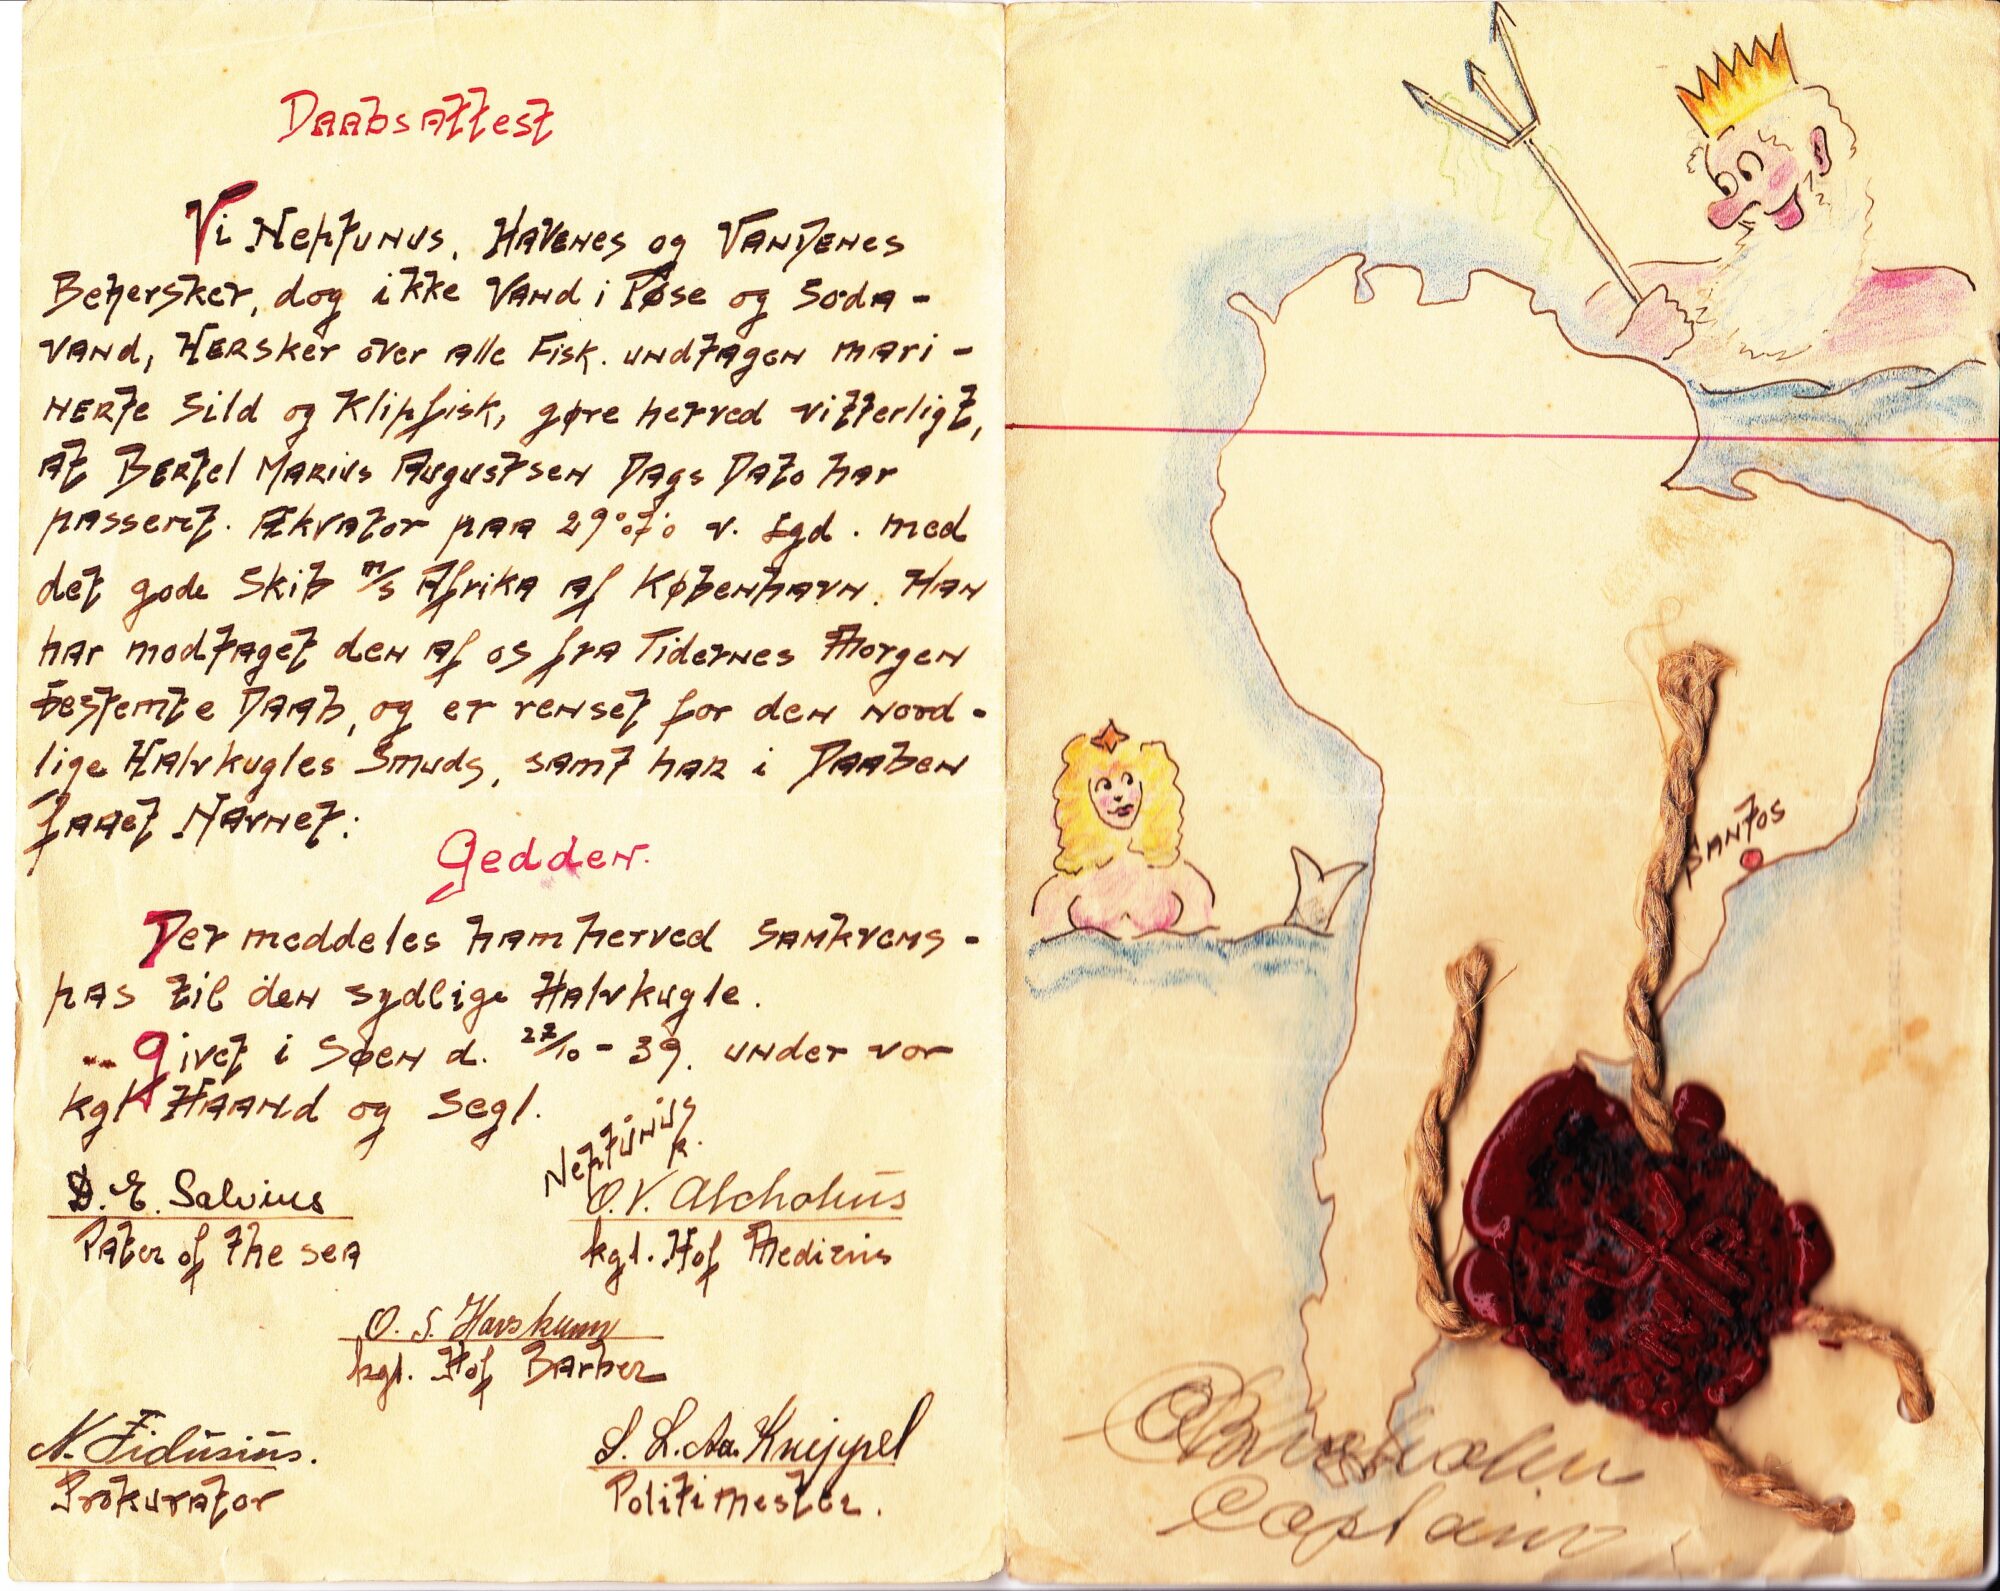 Daabsattest
Vi Neptunus, Havenes og Vandenes
Behersker, dog ikke Vand i Pøse og Soda-
vand, Hersker over alle Fisk. undtagen mari-
nerte Sild og Klipfisk, gøre herved vitterligt,
at Bertel Marius Augustsen Dags Dato har
passert. Ækvator paa 29°07'0 v. Lgd. med
det gode Skib m/s Afrika af København. Han
har modtaget den af os fra Tidernes Morgen
bestemte Daab, og er renset for den nord-
lige Halvkugles Smuds, samt har i Daaben
faaet Navnet:
Gedden.
Der meddeles ham herved samkvems-
pas til den sydlige Halvkugle.
Givet i Søen d. 27/10-39. under vor
kgl Haand og Segl.
Neptunus
R.
D. E. Salvius
Pater of the sea
O.V. Alcholius
kgl. Hof Medicus
O. S. Havskum
kgl. Hof Barber
N. Fidusius.
Prokurator
S. L. Aa. Knippel
Politimester.
Santos
Captain